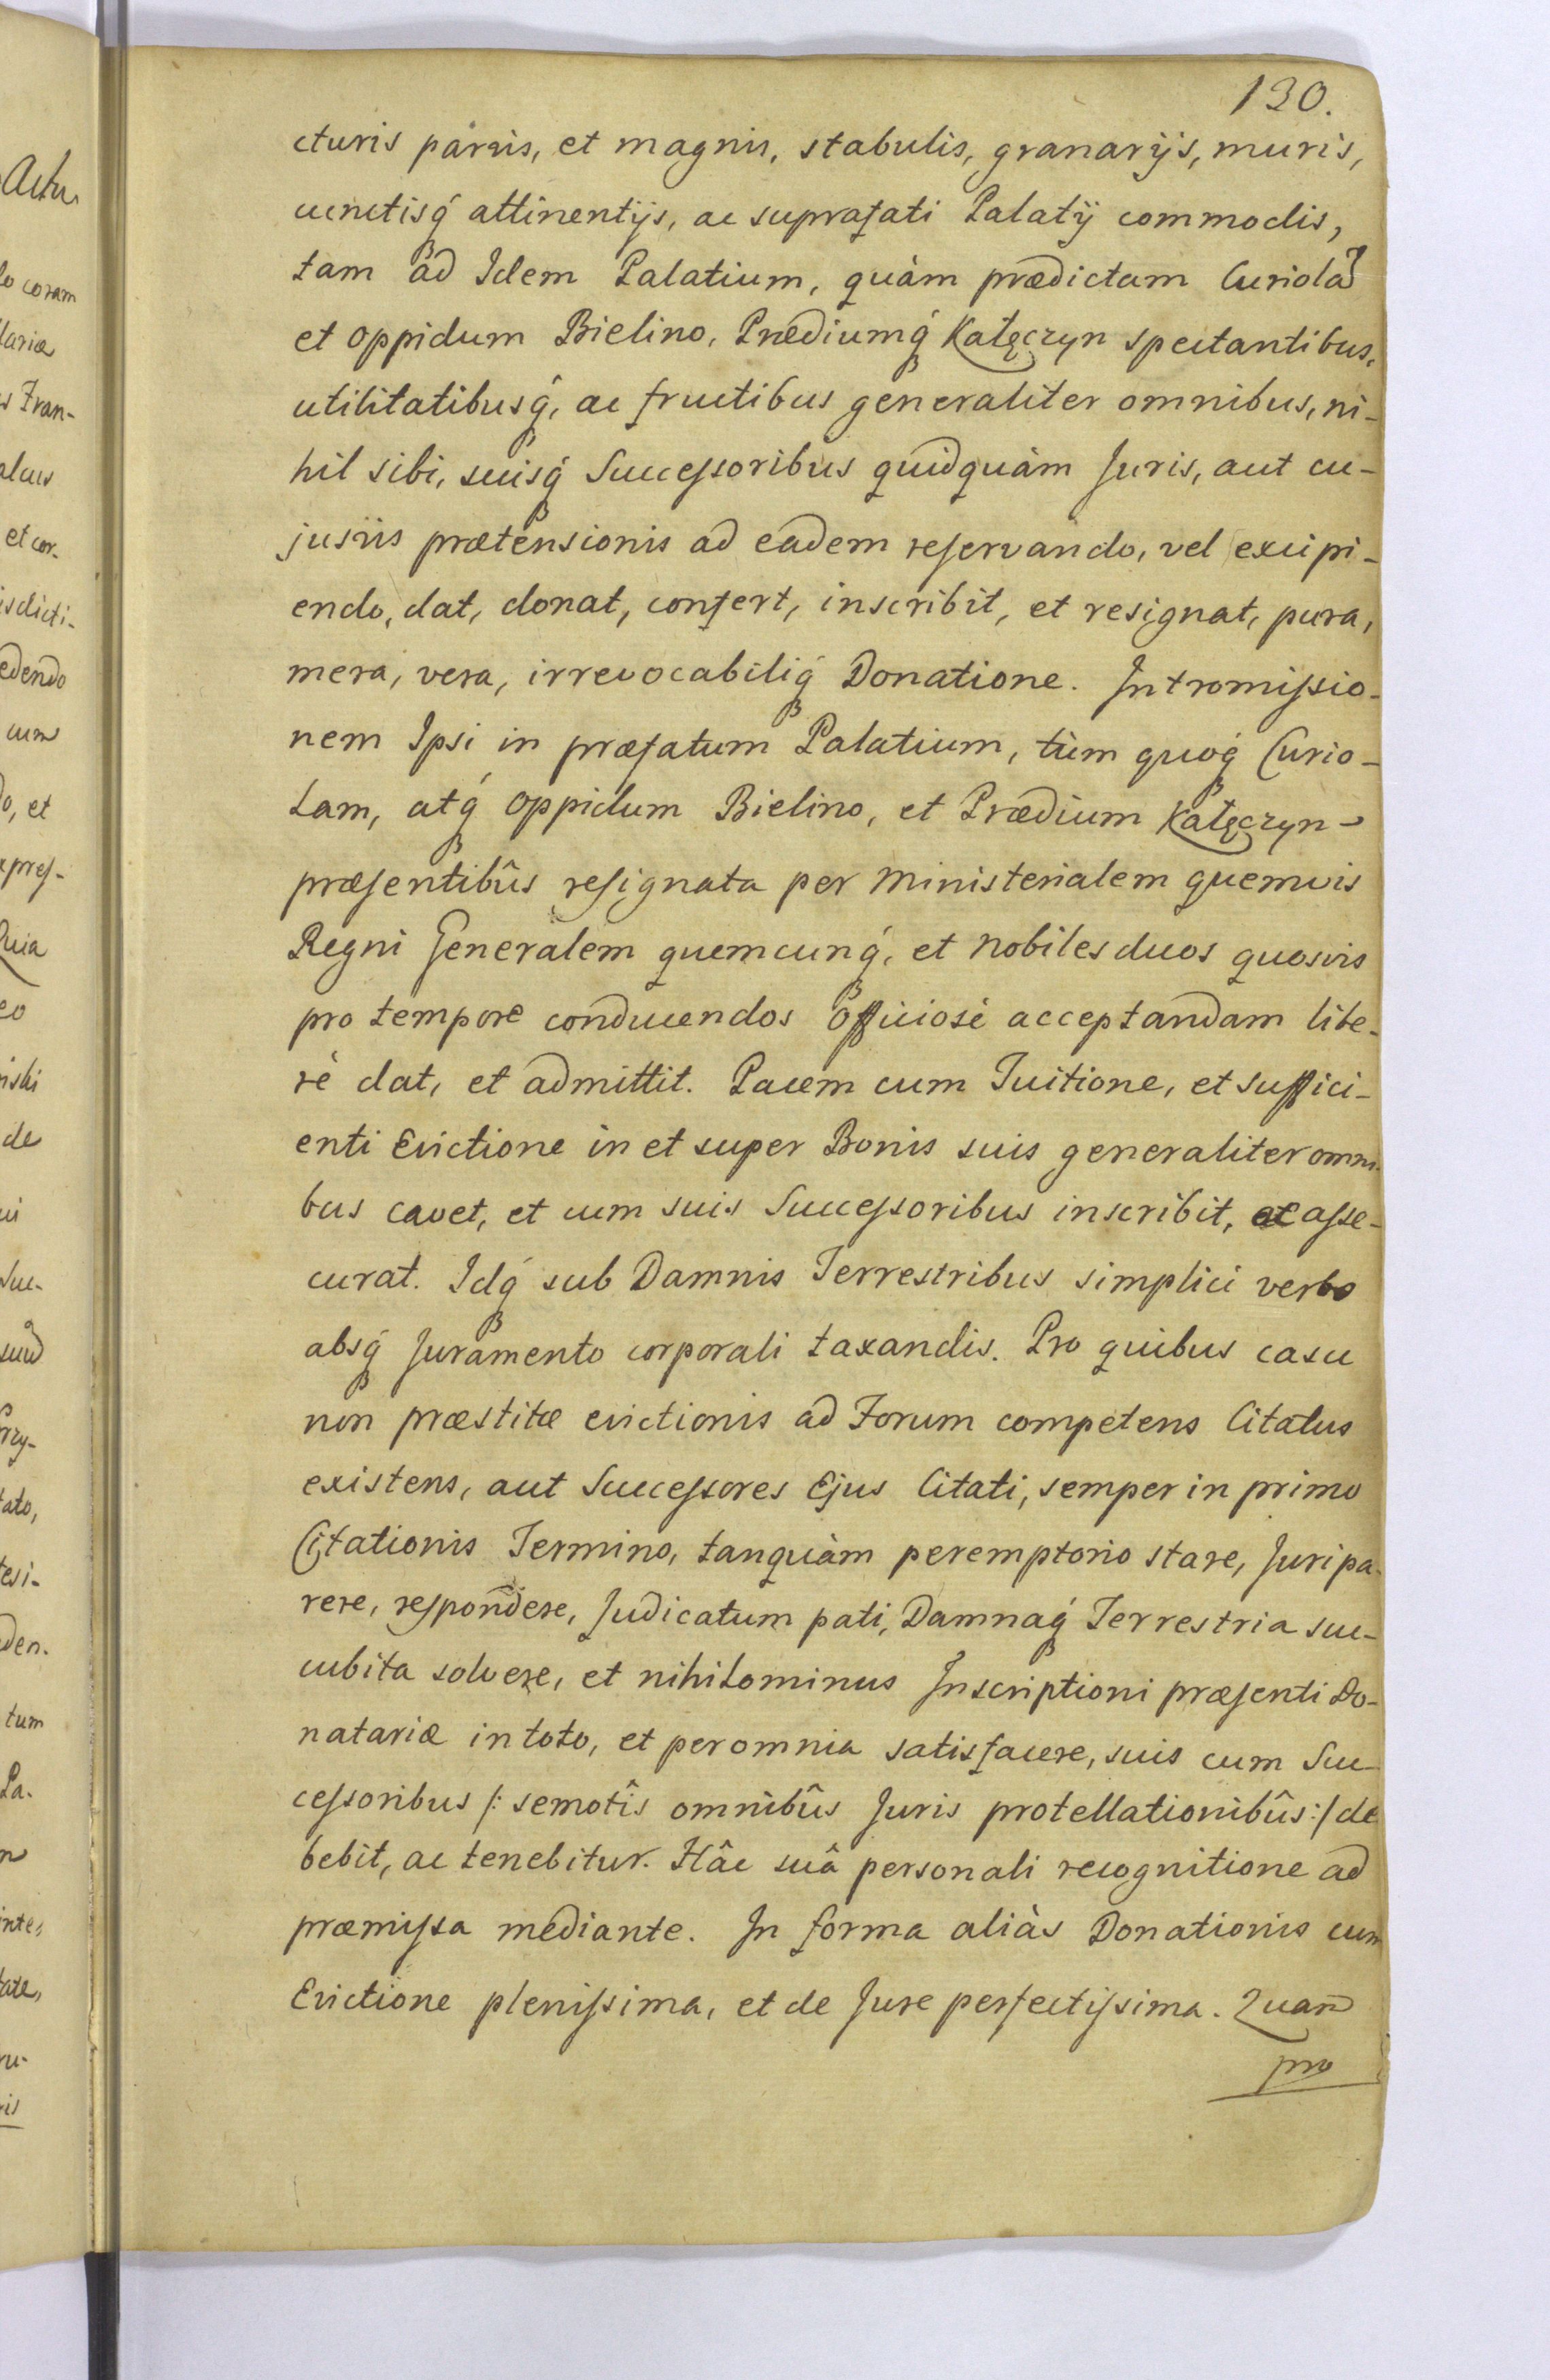 130.
cturis parvis, et magnis, stabulis, granarijs, muris,
cunctisq́ attinentijs, ac suprafati Palatij commodis,
tam ad Idem Palatium, quàm prædictam Curiolam
et oppidum Bielino, Prædiumq́ Katęczyn spectantibus,
utilitatibusq́, ac fructibus generaliter omnibus, ni-
hil sibi, suisq́ Successoribus quidquàm Juris, aut cu-
jusvis prætensionis ad eadem reservando, vel excipi-
endo, dat, donat, confert, inscribit, et resignat, pura,
mera, vera, irrevocabiliq́ Donatione. Intromissio-
nem Ipsi in præfatum Palatium, tùm quoq́ Curio-
lam, atq́ oppidum Bielino, et Prædium Katęczyn
præsentibûs resignata per ministerialem quemvis
Regni Generalem quemcunq́, et nobiles duos quosvis
pro tempore conducendos officiosè acceptandam libe-
rè dat, et admittit. Pacem cum Tuitione, et suffici-
enti Evictione in et super Bonis suis generaliter omni-
bus cavet, et cum suis Successoribus inscribit, ac asse-
curat. Idq́ sub Damnis Terrestribus simplici verbo
absq́ Juramento corporali taxandis. Pro quibus casu
non præstitæ evictionis ad Forum competens Citatus
existens, aut Successores Ejus Citati, semper in primo
Citationis Termino, tanquàm peremptorio stare, Juri pa-
rere, respondere, Judicatum pati, Damnaq́ Terrestria suc-
cubita solvere, et nihilominus Inscriptioni præsenti Do-
natariæ in toto, et per omnia satisfacere, suis cum Suc-
cessoribus /: semotîs omnibûs Juris protellationibûs :/ de
bebit, ac tenebitur. Hâc suâ personali recognitione ad
præmissa mediante. In forma aliàs Donationis cum
Evictione plenissima, et de Jure perfectissima. Quam
pro